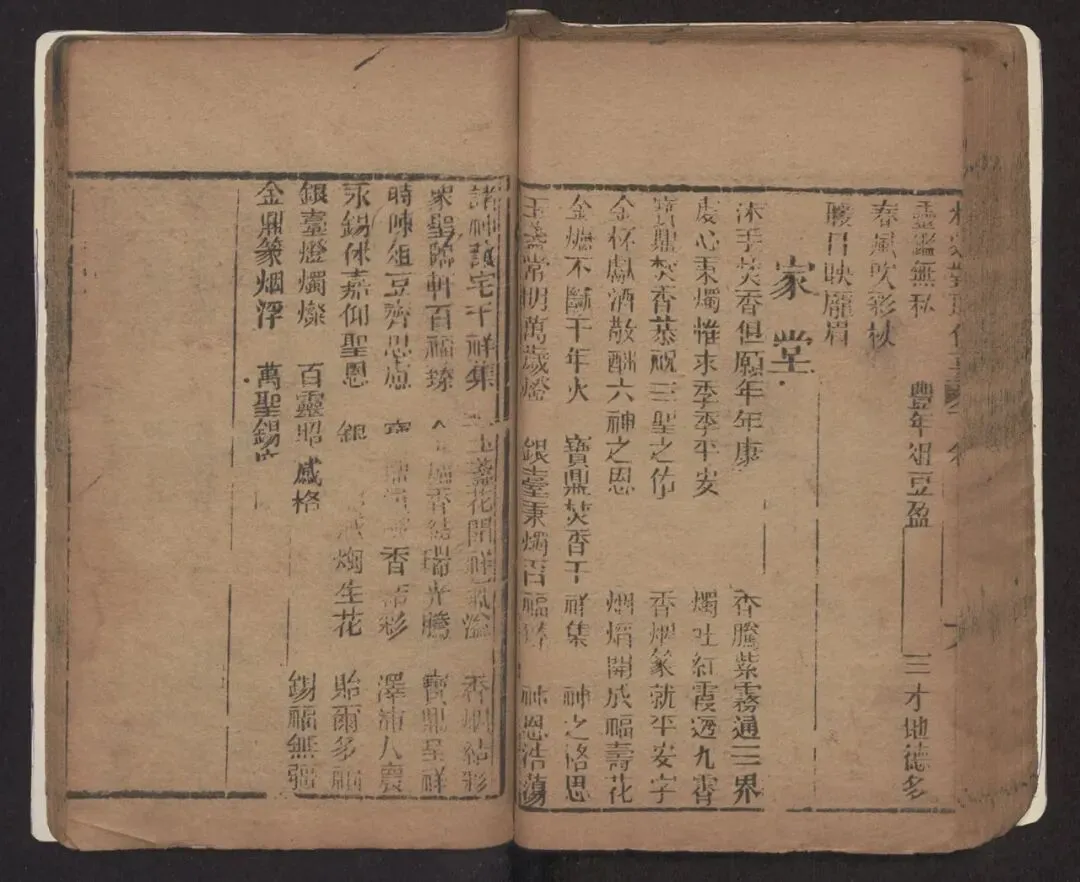 靈鑑無私　豐年俎豆盈　三才地德多
春風吹彩袂
暖日映龐眉
家堂
沐手焚香但願年年康　香騰紫霧通三界
虔心秉燭惟求季季平安　燭吐紅霞透九霄
寶鼎焚香恭祝三聖之佑　香烟篆就平安字
金杯獻酒敬酬六神之恩　烟焰開成福壽花
金爐不斷千年火　寶鼎焚香千祥集　神之格思
玉盞常明萬歲燈　銀臺秉燭百福臻　神恩浩蕩
諸神護宅千祥集　玉盞花開祥氣溢　香烟結彩
眾聖臨軒百福臻　香結瑞光騰　寶鼎呈祥
時陳俎豆齊思慮　寶　香結彩　澤沛人寰
永錫休嘉仰聖恩　銀　燭生花　貽爾多福
銀臺燈燭燦　百靈昭感格　錫福無疆
金鼎篆烟浮　萬聖錫